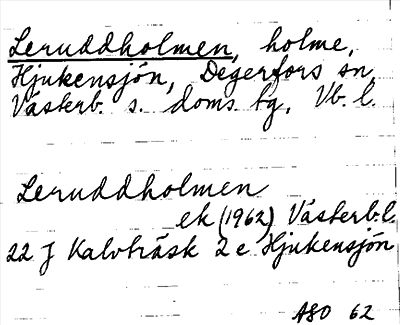 Leruddholmen, holme,
Hjukensjön, Degerfors sn,
Västerb. s. doms tg, Vb. l.
Leruddholmen
ek (1962) Västerb. l
22 J Kalvträsk 2 e Hjukensjön
ASO 62